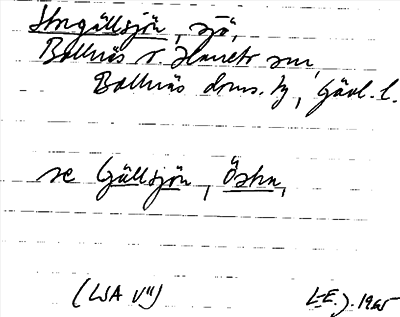 Storgällsjön, sjö,
Bollnäs o. Hanebo snr,
Bollnäs doms. tg, Gävl. l.
se Gällsjön, Östra,
(LSA V11)
L-E. J. 1965